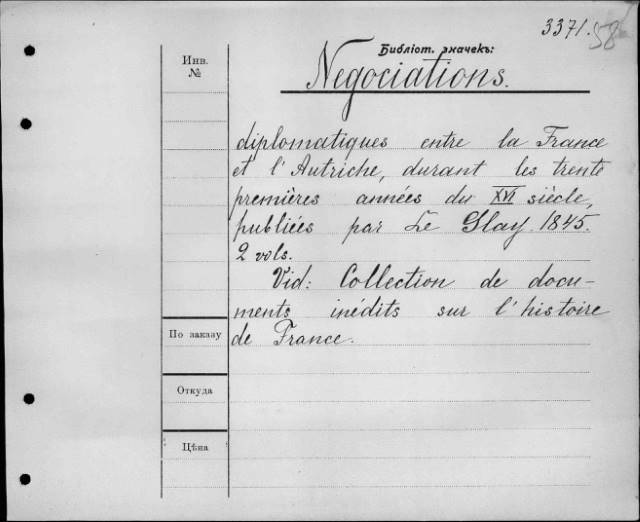 3371.58
Библіот. значекъ:
Инв.
№
Negociations.
diplomatiques entre la France
et l'Autriche, durant les trente
premières années du XVI siècle,
publiées par Le Glay. 1845.
2 vols.
Vid: Collection de docu-
ments inédits sur l'histoire
de France.
По заказу
Откуда
Цѣна